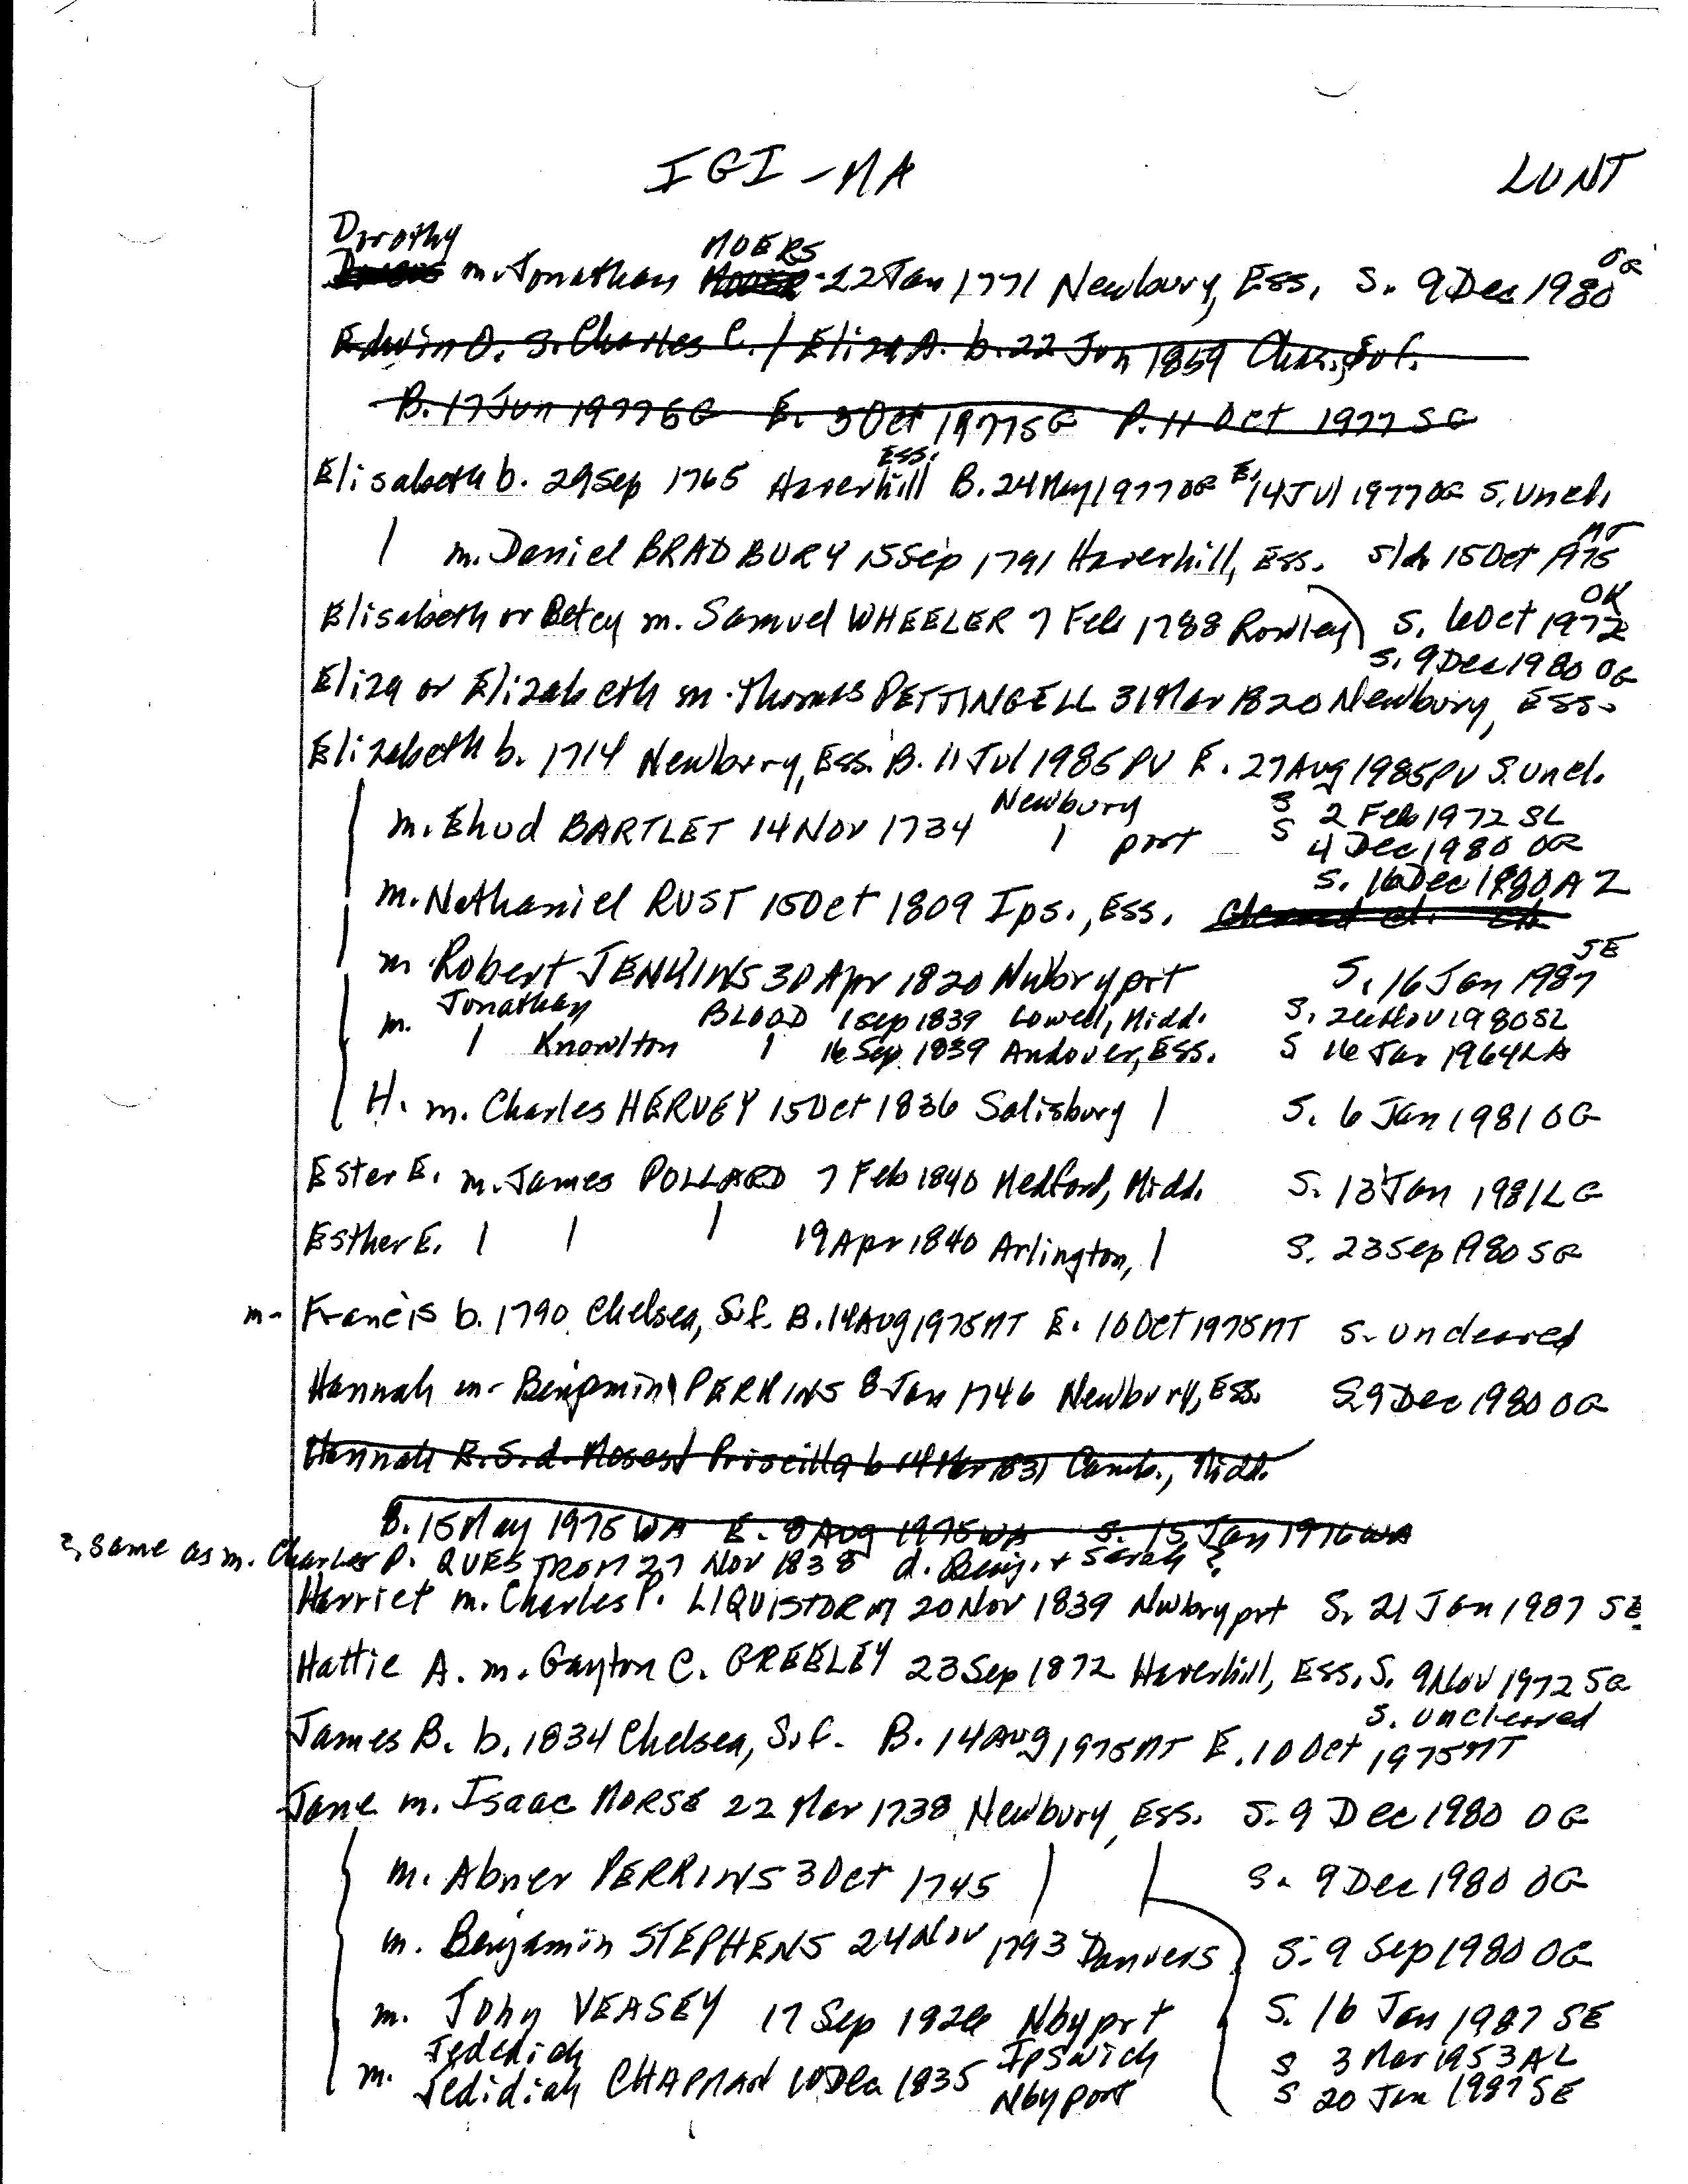 IGI - MA LUNT
Dorothy MOERS OG
m. Jonathan 22 Jan 1771 Newbury, Ess, S. 9 Dec 1980
Edwin O. s. Charles C. / Eliza A. b. 22 Jun 1859 Chas., Suf.
B. 17 Jun 1977 SG E. 3 Oct 1977 SG P. 11 Oct 1977 SG
Ess.
Elisabeth b. 29 Sep 1765 Haverhill B. 24 May 1977 OG E. 14 Jul 1977 OG S. Uncl.
NT
| m. Daniel BRADBURY 15 Sep 1791 Haverhill, Ess. 15 Oct 1975
OK
Elisabeth or Betey m. Samuel WHEELER 7 Feb 1788 Rowley S. 6 Oct 1972
S. 9 Dec 1980 OG
Eliza or Elizabeth m. Thomas PETTINGELL 31 Mar 1820 Newbury, Ess.
Elizabeth b. 1714 Newbury, Ess. B. 11 Jul 1985 PV E. 27 Aug 1985 PV S. Uncl.
Newbury S 2 Feb 1972 SL
m. Ehud BARTLET 14 Nov 1734 | port S 4 Dec 1980 OG
S. 16 Dec 1980 AZ
m. Nathaniel RUST 15 Oct 1809 Ips., Ess. Cleared
SE
m. Robert JENKINS 30 Apr 1820 Nwbryprt S. 16 Jan 1987
m. Jonathan BLOOD 1 Sep 1839 Lowell, Midd. S. 26 Nov 1980 SL
| Knowlton | 16 Sep. 1839 Andover, Ess. S 16 Jan 1964 LA
H. m. Charles HERVEY 15 Oct 1836 Salisbury | S. 6 Jan 1981 OG
Ester E. m. James POLLARD 7 Feb 1840 Medford, Midd. S. 13 Jan 1981 LG
Esther E. | | | 19 Apr 1840 Arlington, | S. 23 Sep 1980 SG
m- Francis b. 1790 Chelsea, Suf. B. 14 Aug 1975 NT E. 10 Oct 1975 NT S. Uncleared
Hannah m. Benjamin PERKINS 8 Jan 1746 Newbury, Ess. S 9 Dec 1980 OG
Hannah E. S. d. Moses / Priscilla b 14 Mar 1831 Camb., Midd.
B. 15 May 1975 WA E. 8 Aug 1975 WA S. 15 Jan 1976 WA
? same as m. Charles P. QUESTROM 27 Nov 1838 d. Benj. + Sarah ?
Harriet m. Charles P. LIQUISTORM 20 Nov 1839 Nwbryprt S. 21 Jan 1987 SE
Hattie A. m. Gayton C. GREELEY 23 Sep 1872 Haverhill, Ess. S. 9 Nov 1972 SG
S. Uncleared
James B. b. 1834 Chelsea, Suf. B. 14 Aug 1975 NT E. 10 Oct 1975 NT
Jane m. Isaac MORSE 22 Mar 1738 Newbury, Ess. S. 9 Dec 1980 OG
m. Abner PERKINS 3 Oct 1745 | | S. 9 Dec 1980 OG
m. Benjamin STEPHENS 24 Nov 1793 Danvers S. 9 Sep 1980 OG
m. John VEASEY 17 Sep 1826 Nbyprt S. 16 Jan 1987 SE
Jedediah Ipswich S 3 Mar 1953 AL
m. Jedidiah CHAPMAN 10 Dec 1835 Nbyport S 20 Jan 1987 SE